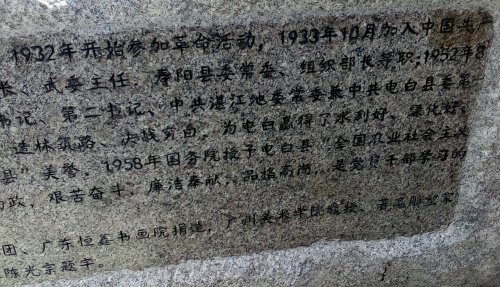 1932年开始参加革命活动，1933年10月加入中国共产
长、武委主任，寿阳县委常委、组织部长等职；1952年
书记、第二书记、中共湛江地委常委兼中共电白县委第
造林筑路、决战穷白，为电白赢得了水利好、绿化好、
县”美誉。1958年国务院授予电白县“全国农业社会主义
政，艰苦奋斗，廉洁奉献，品格高尚，是党员干部学习的
团、广东恒鑫书画院捐造，广州美术学院教授、著名雕塑家
陈光宗题字。